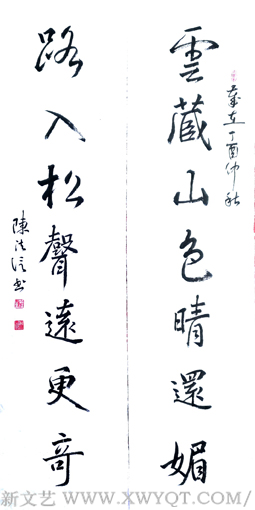 歲在丁酉仲秋
雲藏山色晴還媚
路入松聲遠更奇
新文艺 WWW.XWYQT.COM/